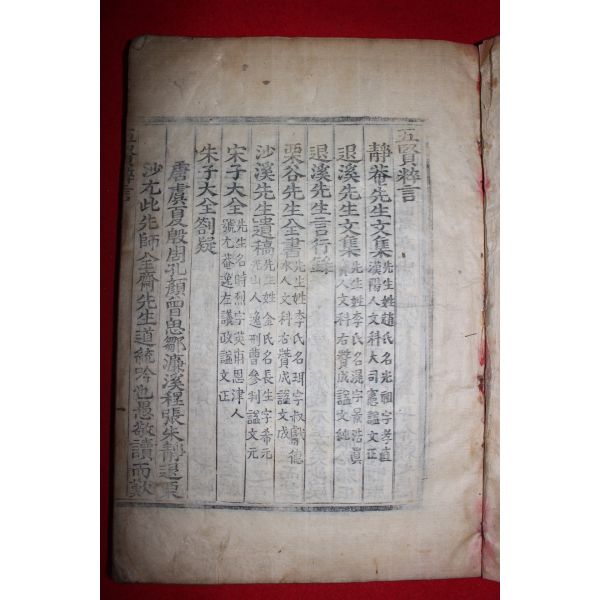 五賢粹言
靜菴先生文集 先生姓趙氏名光祖字孝直
漢陽人文科大司憲諡文正
退溪先生文集 先生姓李氏名滉字景浩眞
人文科右贊成諡文純
退溪先生言行錄
栗谷先生全書 先生姓李氏名珥字叔獻德
水人文科右贊成諡文成
沙溪先生遺稿 先生姓金氏名長生字希元
光山人逸刑曹參判諡文元
宋子大全 先生名時烈字英甫恩津人
號尤菴逸左議政諡文正
朱子大全劄疑
唐虞夏殷周孔顔曾思鄒濂溪程張朱靜退栗
沙尤此先師全齋先生道統吟也愚敬讀而歎
五賢粹言